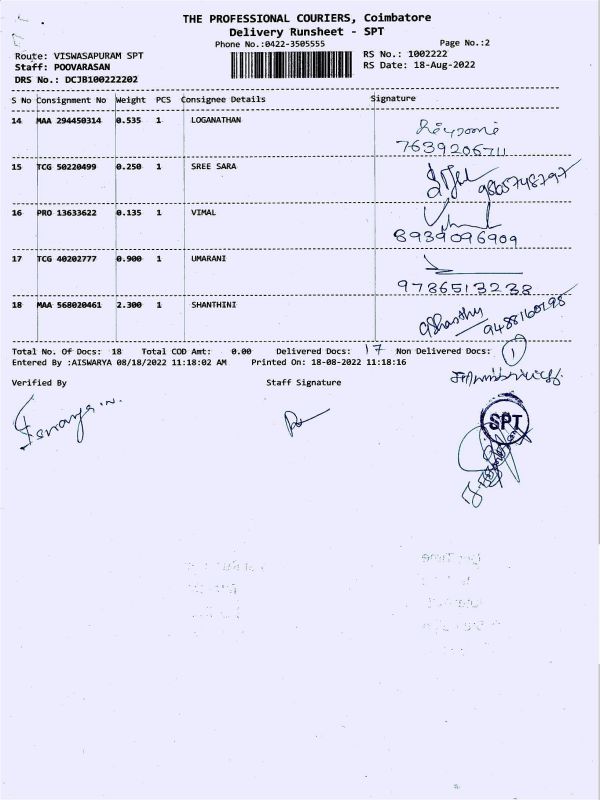 THE PROFESSIONAL COURIERS, Coimbatore
Delivery Runsheet - SPT
Phone No.:0422-3505555 Page No.:2
Route: VISWASAPURAM SPT RS No.: 1002222
Staff: POOVARASAN RS Date: 18-Aug-2022
DRS No.: DCJB100222202
S No Consignment No Weight PCS Consignee Details Signature
14 MAA 294450314 0.535 1 LOGANATHAN
7639206711
15 TCG 50220499 0.250 1 SREE SARA
9865748797
16 PRO 13633622 0.135 1 VIMAL
8939096909
17 TCG 40202777 0.900 1 UMARANI
9786513238
18 MAA 568020461 2.300 1 SHANTHINI
Total No. Of Docs: 18 Total COD Amt: 0.00 Delivered Docs: 17 Non Delivered Docs: 1
Entered By :AISWARYA 08/18/2022 11:18:02 AM Printed On: 18-08-2022 11:18:16
Verified By Staff Signature
SPT